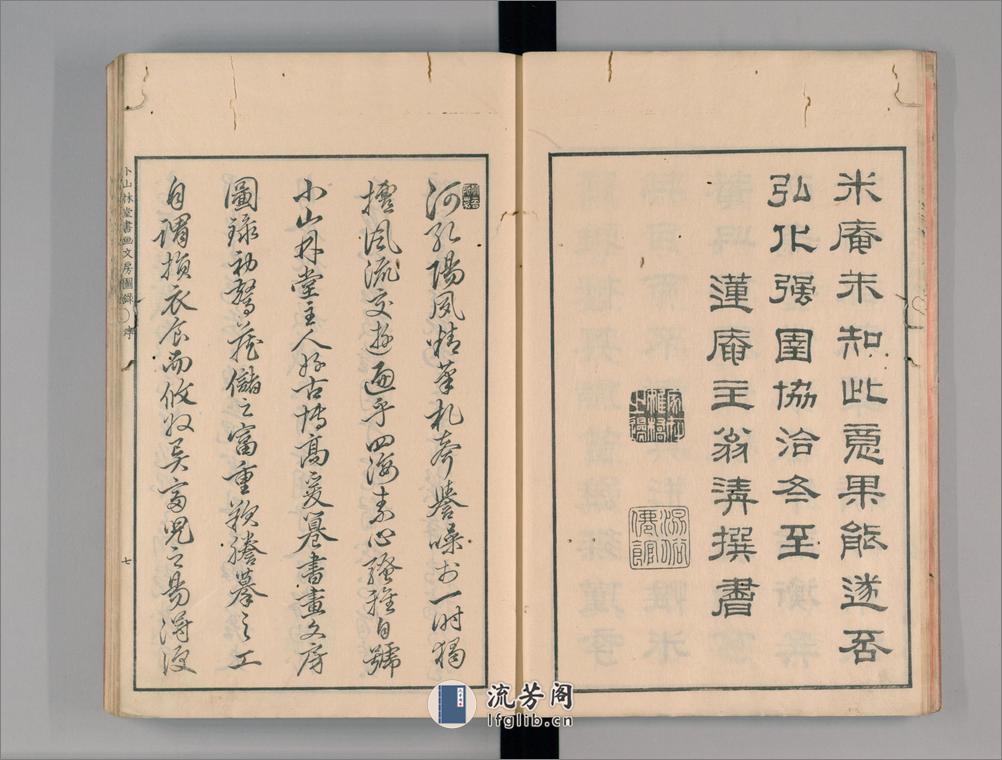 米庵未知此意果能遂否
弘化强圉協洽冬至
庵主翁撰書
河孔陽夙精筆札奔譽噪於一時獨
擅風流交遊遍乎四海素心騷雅自號
小山林堂主人好古博高愛書畫文房
圖錄初驚儲之富重歎摹之工
自謂損衣食而收異富兒之易得
小山林堂書画文房圖録 序 七
流芳阁
lfglib.cn